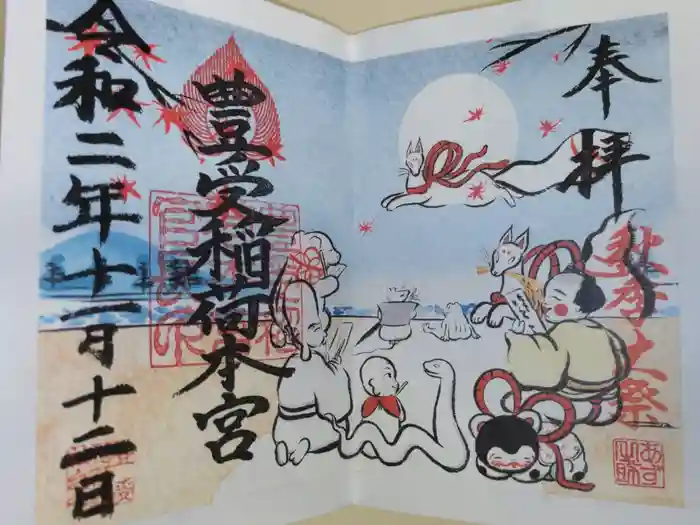 奉拝
秋季大祭
豊受稲荷本宮
令和二年十一月十二日